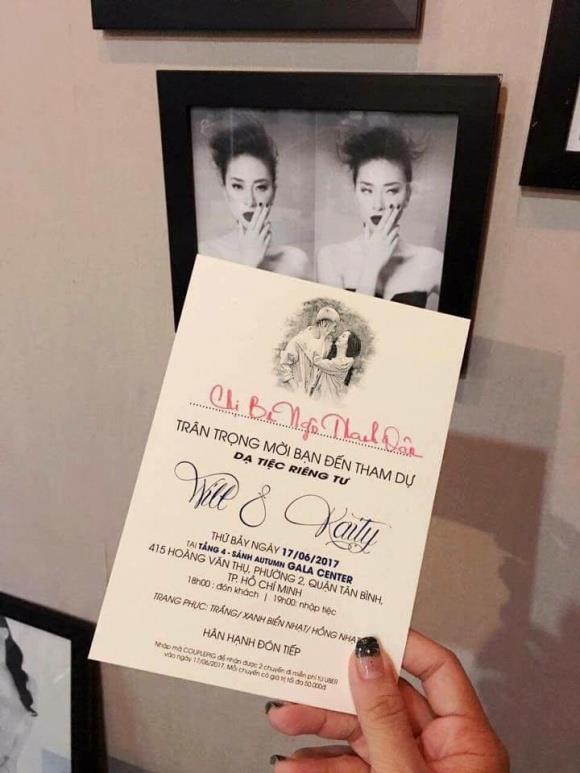 Chị Bà Ngô Thanh Vân
TRÂN TRỌNG MỜI BẠN ĐẾN THAM DỰ
DẠ TIỆC RIÊNG TƯ
Will & Kaity
THỨ BẢY NGÀY 17/06/2017
TẠI TẦNG 4 - SẢNH AUTUMN GALA CENTER
415 HOÀNG VĂN THỤ, PHƯỜNG 2, QUẬN TÂN BÌNH,
TP. HỒ CHÍ MINH
18h00 : đón khách | 19h00: nhập tiệc
TRANG PHỤC: TRẮNG/ XANH BIỂN NHẠT/ HỒNG NHẠ
HÂN HẠNH ĐÓN TIẾP
Nhập mã COUPLEPIG để nhận được 2 chuyến đi miễn phí từ UBER
vào ngày 17/06/2017. Mỗi chuyến có giá trị tối đa 50.000đ